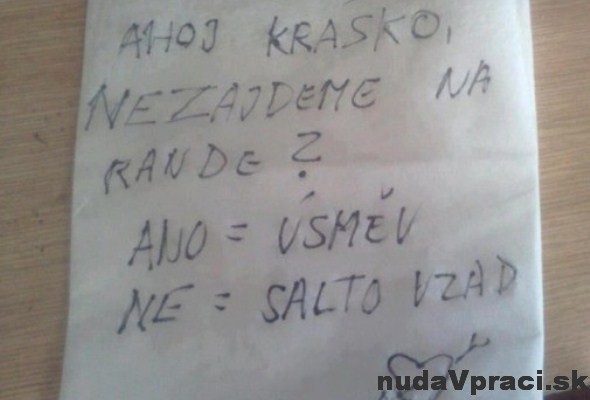 AHOJ KRASKO,
NEZAJDEME NA
RANDE?
ANO = ÚSMĚV
NE = SALTO VZAD
nudaVpraci.sk